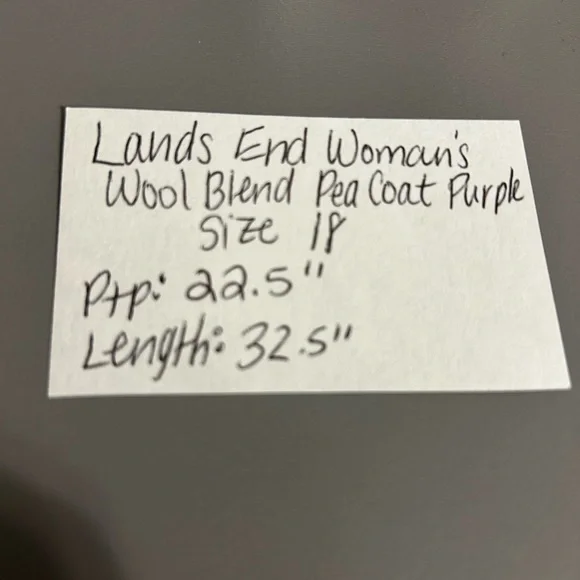 Lands End Woman's
Wool Blend Pea Coat Purple
Size 18
Ptp: 22.5"
Length: 32.5"